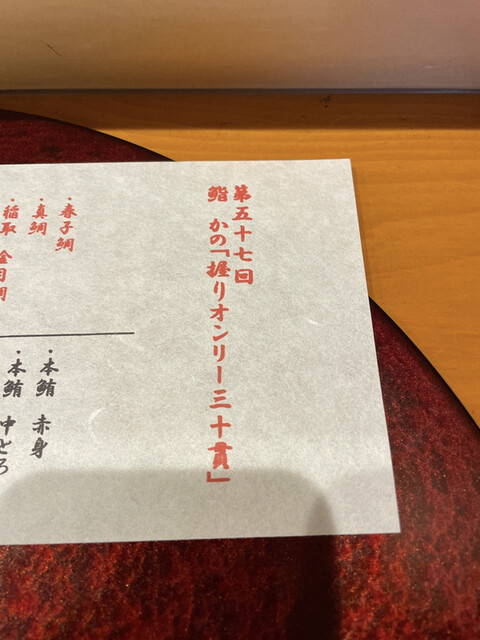 第五十七回
鮨 かの「握りオンリー三十貫」
・春子鯛
・真鯛
・稲取 金目鯛
・本鮪 赤身
・本鮪 中とろ